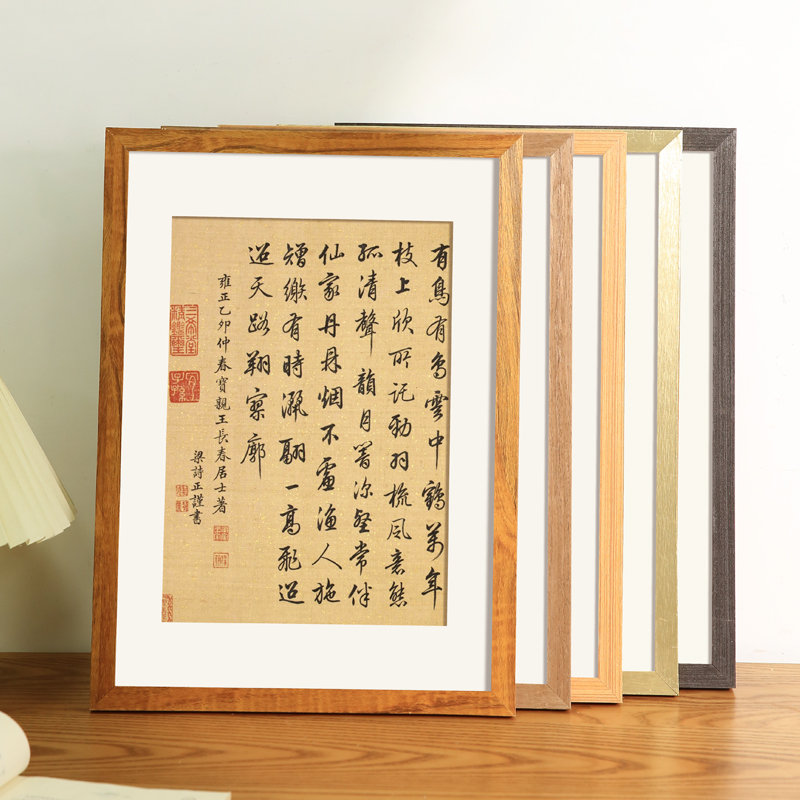 有鳥有鳥雲中鶴萬年
枝上欣所託勁羽梳風意態
孤清聲韻月深壑常伴
仙家丹鼎烟不虞漁人施
矰繳有時翮一高飛迢
迢天路翔寥廓
雍正乙卯仲春寶親王長春居士著
梁詩正謹書
三希堂
精鑑璽
宜
子孫